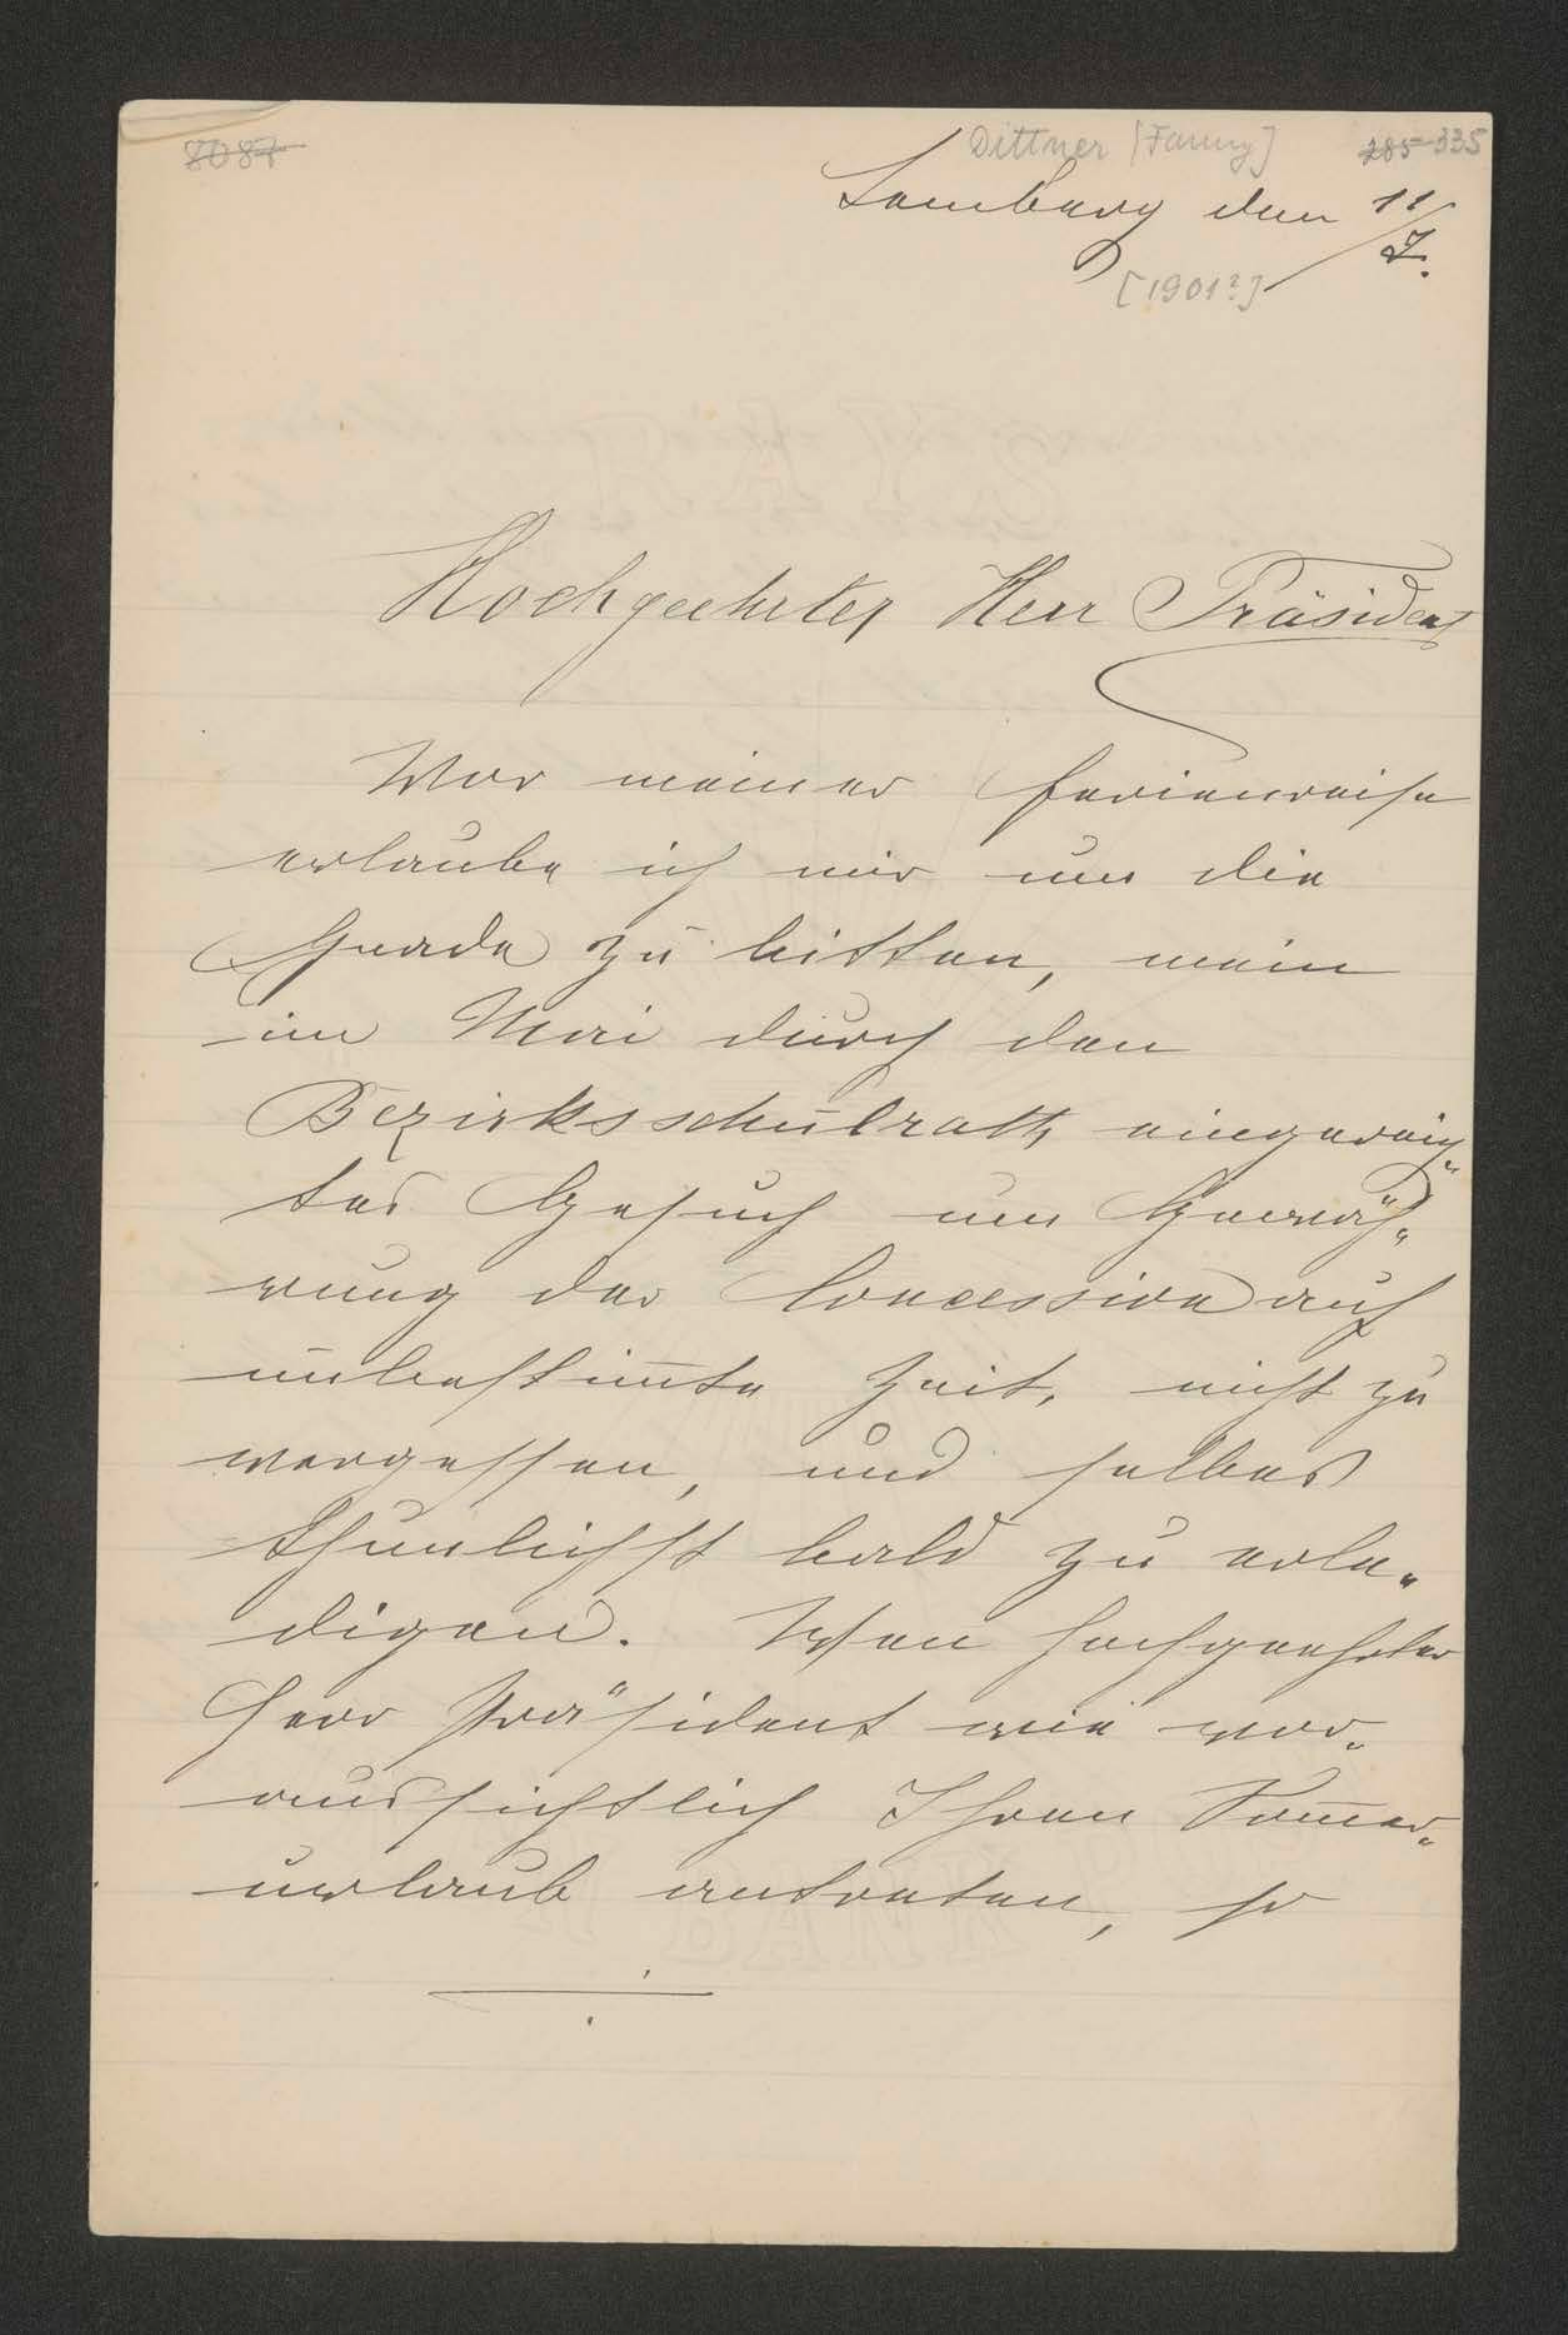 8087
Dittner [Fanny]
285-335
Lemberg den 11/7.
[1901?]
Hochgeehrter Herr Präsident
Vor meiner Ferienreise
erlaube ich mir um die
Gnade zu bitten, mein
im Mai durch den
Bezirksschulrath eingereich„
tes Gesuch um Gewäh„
rung der Concession auf
unbestim̅te Zeit, nicht zu
vergessen, und selbes
thunlichst bald zu erle„
digen. Wen hochgeehrter
Herr Präsident wie vor„
aussichtlich Ihren Som̅er„
urlaub antreten, so